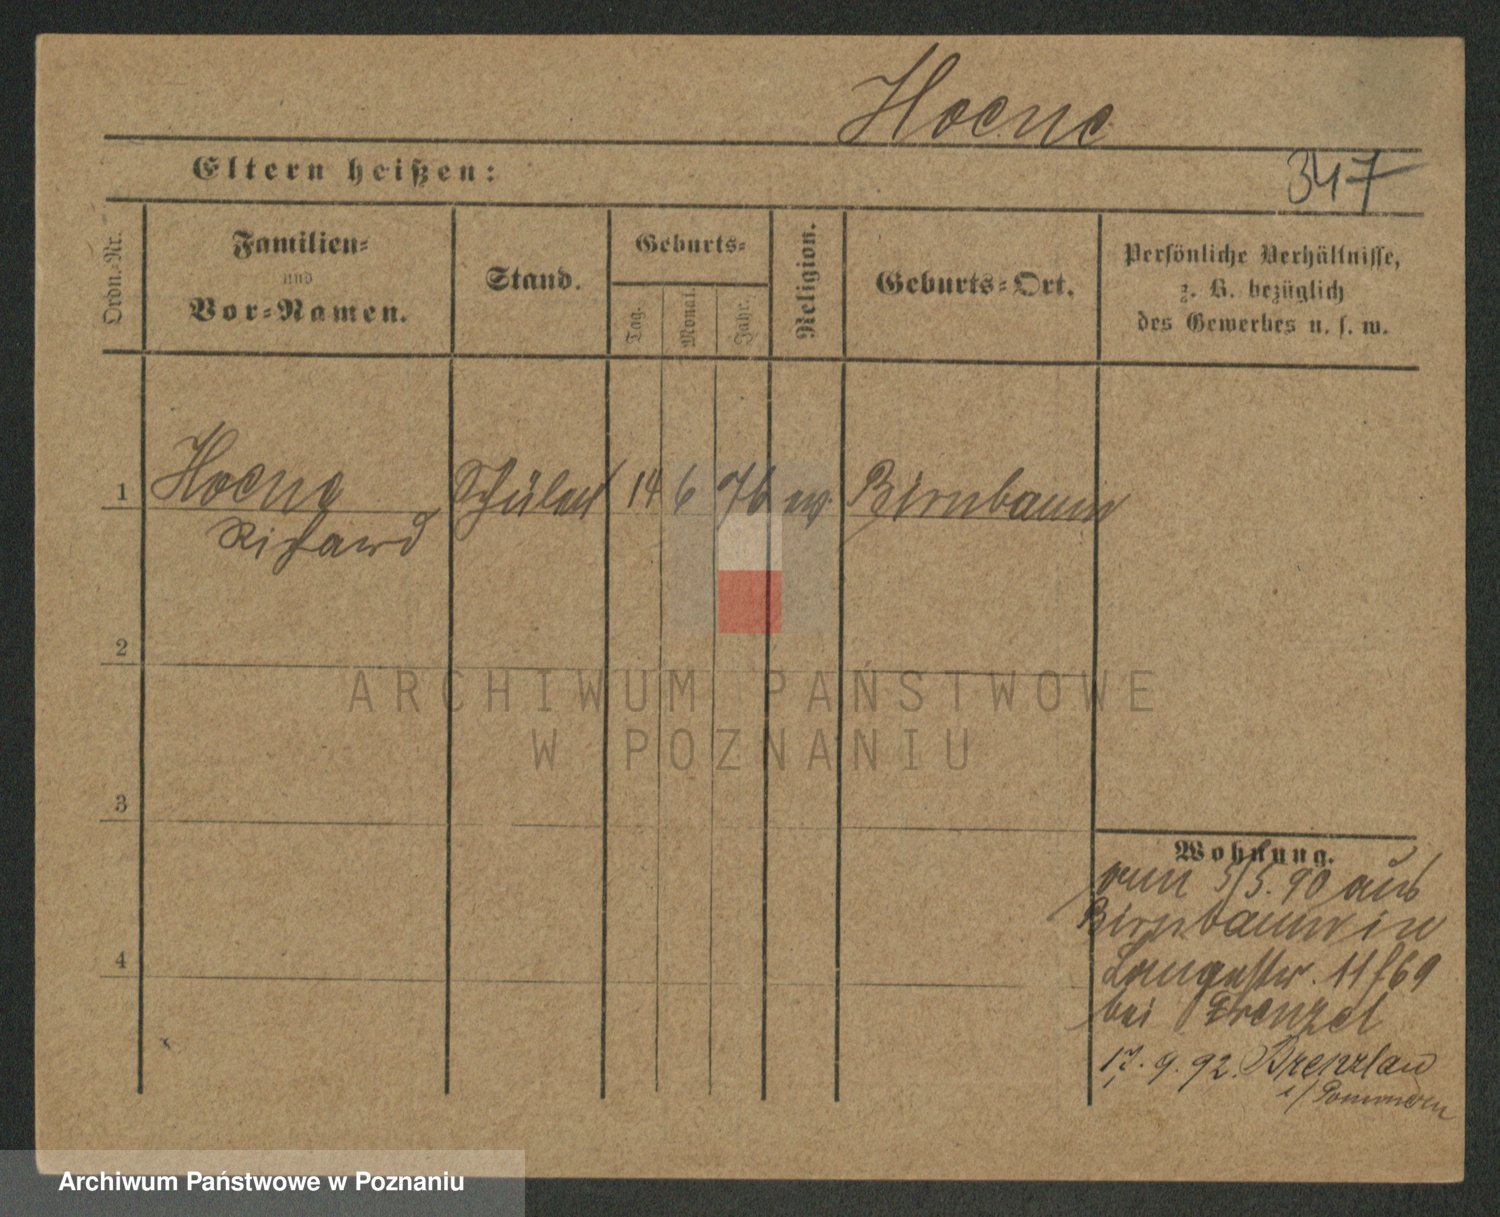 Hoene
Eltern heißen:
347
Ordn.-Nr.
Familien-
und
Vor-Namen.
Stand.
Geburts-
Tag.
Monat.
Jahr.
Religion.
Geburts-Ort.
Persönliche Verhältnisse,
z. B. bezüglich
des Gewerbes u. s. w.
1 Hoene Schüler 14 6 76 ev. Birnbaum
Richard
2
ARCHIWUM PAŃSTWOWE
W POZNANIU
3
Wohnung.
5/5. 90 aus
Birnbaum in
Langestr. 11 69
4
bei Frenzel
17. 9. 92.
i/ Pommern
Archiwum Państwowe w Poznaniu